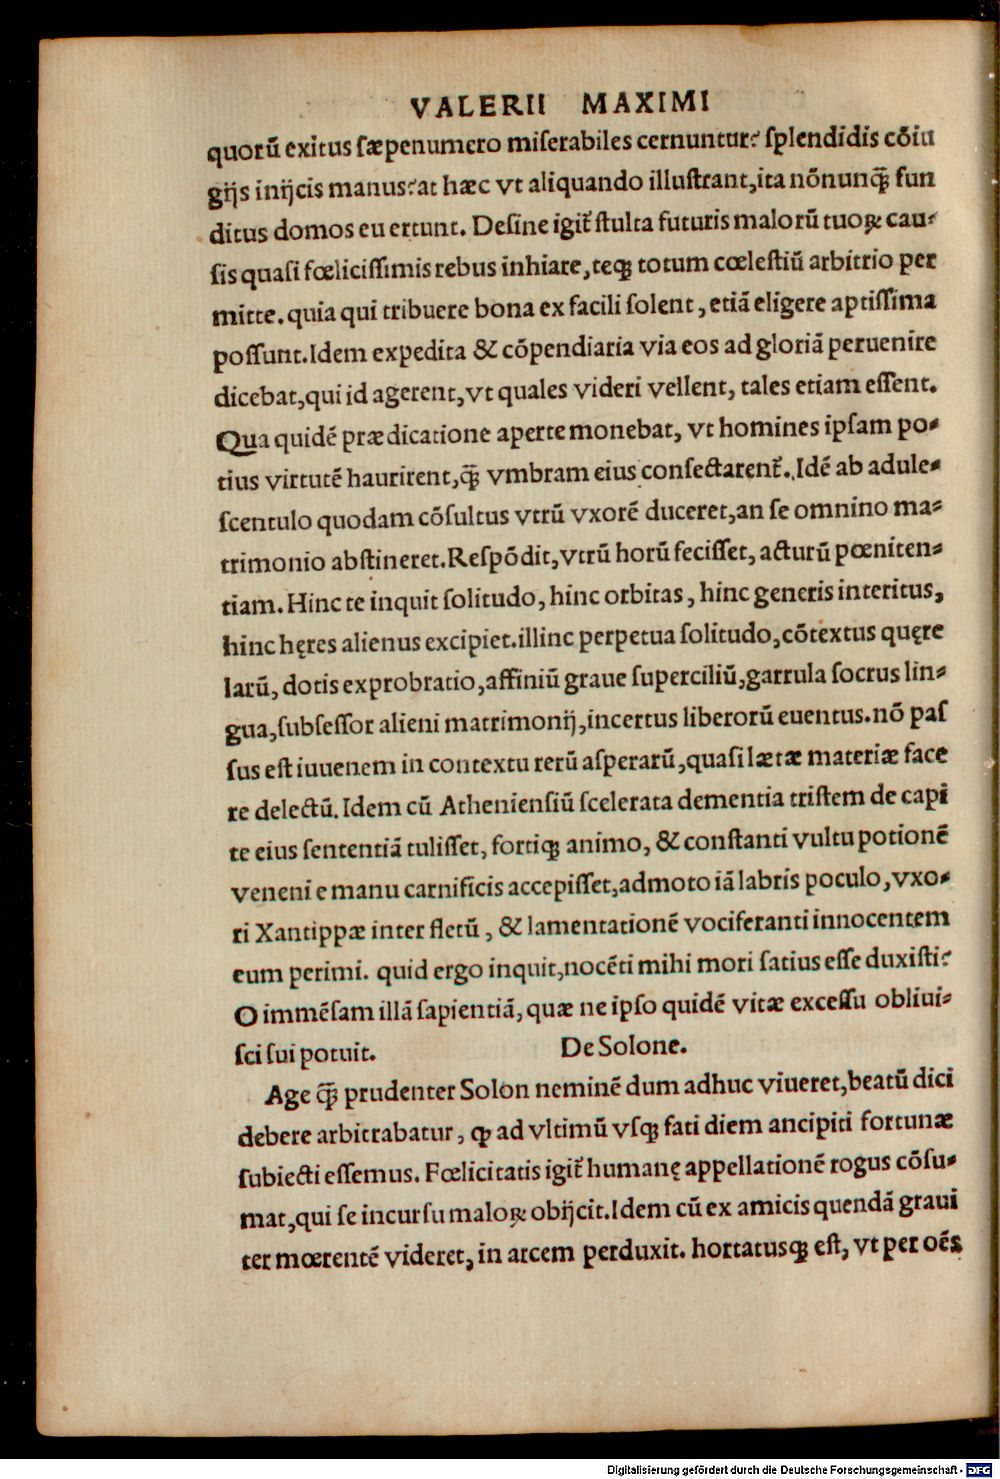 VALERII MAXIMI
quorũ exitus sæpenumero miserabiles cernuntur? splendidis cõiu
gijs inijcis manus? at hæc vt aliquando illustrant, ita nõnunq̃ fun
ditus domos euertunt. Desine igit̃ stulta futuris malorũ tuoꝝ cau-
sis quasi fœlicissimis rebus inhiare, teqꝫ totum cœlestiũ arbitrio per
mitte. quia qui tribuere bona ex facili solent, etiã eligere aptissima
possunt. Idem expedita & cõpendiaria via eos ad gloriã peruenire
dicebat, qui id agerent, vt quales videri vellent, tales etiam essent.
Qua quidẽ prædicatione aperte monebat, vt homines ipsam po-
tius virtutẽ haurirent, q̃ vmbram eius consectarent̃. Idẽ ab adule-
scentulo quodam cõsultus vtrũ vxorẽ duceret, an se omnino ma-
trimonio abstineret. Respõdit, vtrũ horũ fecisset, acturũ pœniten-
tiam. Hinc te inquit solitudo, hinc orbitas, hinc generis interitus,
hinc hęres alienus excipiet. illinc perpetua solitudo, cõtextus quęre
larũ, dotis exprobratio, affiniũ graue superciliũ, garrula socrus lin-
gua, subsessor alieni matrimonij, incertus liberorũ euentus. nõ pas
sus est iuuenem in contextu rerũ asperarũ, quasi lætæ materiæ face
re delectũ. Idem cũ Atheniensiũ scelerata dementia tristem de capi
te eius sententiã tulisset, fortiqꝫ animo, & constanti vultu potionẽ
veneni e manu carnificis accepisset, admoto iã labris poculo, vxo-
ri Xantippæ inter fletũ, & lamentationẽ vociferanti innocentem
eum perimi. quid ergo inquit, nocẽti mihi mori satius esse duxisti?
O immẽsam illã sapientiã, quæ ne ipso quidẽ vitæ excessu obliui-
sci sui potuit. De Solone.
Age q̃ prudenter Solon neminẽ dum adhuc viueret, beatũ dici
debere arbitrabatur, ꝙ ad vltimũ vsqꝫ fati diem ancipiti fortunæ
subiecti essemus. Fœlicitatis igit̃ humanę appellationẽ rogus cõsu-
mat, qui se incursu maloꝝ obijcit. Idem cũ ex amicis quendã graui
ter mœrentẽ videret, in arcem perduxit. hortatusqꝫ est, vt per oẽs
Digitalisierung gefördert durch die Deutsche Forschungsgemeinschaft - DFG